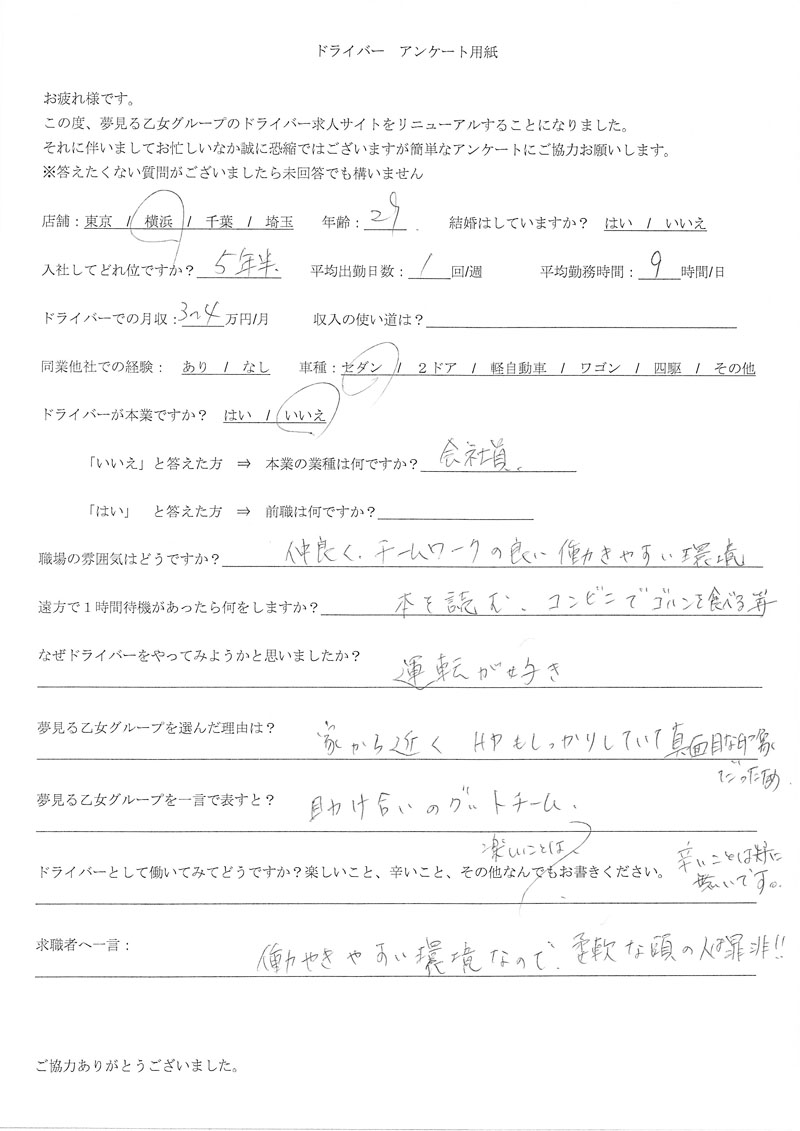 ドライバー　アンケート用紙
お疲れ様です。
この度、夢見る乙女グループのドライバー求人サイトをリニューアルすることになりました。
それに伴いましてお忙しいなか誠に恐縮ではございますが簡単なアンケートにご協力お願いします。
※答えたくない質問がございましたら未回答でも構いません
店舗：東京 / 横浜 / 千葉 / 埼玉　年齢：29　結婚はしていますか？ はい / いいえ
入社してどれ位ですか？ 5年半.　平均出勤日数：1 回/週　平均勤務時間：9 時間/日
ドライバーでの月収：3~4 万円/月　収入の使い道は？
同業他社での経験： あり / なし　車種：セダン / ２ドア / 軽自動車 / ワゴン / 四駆 / その他
ドライバーが本業ですか？ はい / いいえ
「いいえ」と答えた方 ⇒ 本業の業種は何ですか？ 会社員.
「はい」 と答えた方 ⇒ 前職は何ですか？
職場の雰囲気はどうですか？ 仲良く、チームワークの良い働きやすい環境
遠方で１時間待機があったら何をしますか？ 本を読む、コンビニでゴハンを食べる等
なぜドライバーをやってみようかと思いましたか？
運転が好き
夢見る乙女グループを選んだ理由は？
家から近く HPもしっかりしていて真面目な印象
だったため.
夢見る乙女グループを一言で表すと？
助け合いのグットチーム.
楽しいことは、
ドライバーとして働いてみてどうですか？楽しいこと、辛いこと、その他なんでもお書きください。 辛いことは特に
無いです。
求職者へ一言：
働やきやすい環境なので、柔軟な頭の人は是非!!
ご協力ありがとうございました。